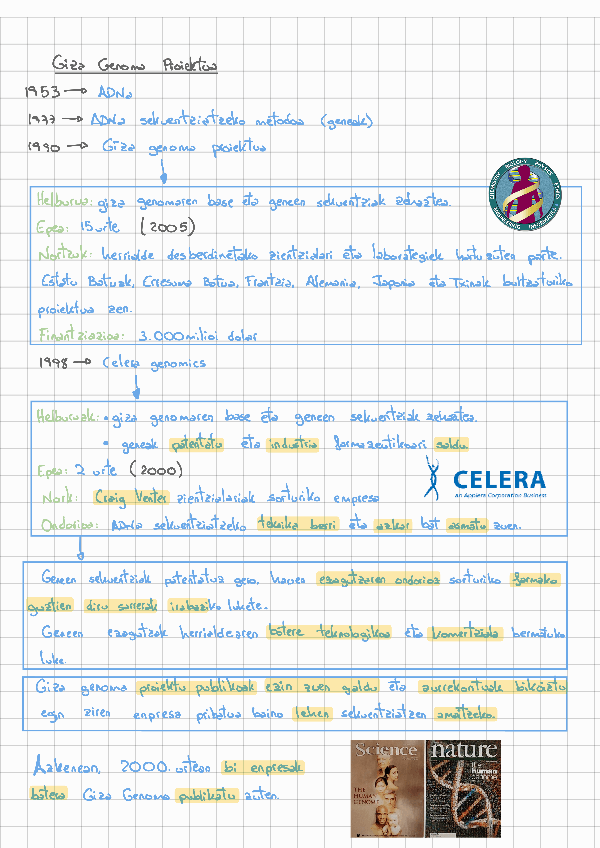 Giza Genoma Proiektua
1953 → ADNa
1977 → ADNa sekuentziatzeko metodoa (geneak)
1990 → Giza genoma proiektua
Helburua: giza genomaren base eta geneen sekuentziak zehaztea.
Epea: 15 urte (2005)
Nortzuk: herrialde desberdinetako zientzialari eta laborategiek hartu zuten parte.
Estatu Batuak, Erresuma Batua, Frantzia, Alemania, Japonia eta Txinak bultzaturiko
proiektua zen.
Finantziazioa: 3.000 milioi dolar
1998 → Celera genomics
Helburuak: • giza genomaren base eta geneen sekuentziak zehaztea.
• geneak patentatu eta industria farmazeutikoari saldu
Epea: 2 urte (2000)
Nork: Craig Venter zientzialariak sorturiko enpresa
CELERA
An Applera Corporation Business
Ondorioa: ADNa sekuentziatzeko teknika berri eta azkar bat asmatu zuen.
Geneen sekuentziak patentatua gero, hauen ezagutzaren ondorioz sorturiko farmako
guztien diru sarrerak irabaziko lukete.
Geneen ezagutzak herrialdearen botere teknologikoa eta komertziala bermatuko
luke.
Giza genoma proiektu publikoak ezin zuen galdu eta aurrekontuak bikoiztu
egin ziren enpresa pribatua baino lehen sekuentziatzen amaitzeko.
Azkenean, 2000. urtean bi enpresak
batera Giza Genoma publikatu zuten.
Science
THE
HUMAN
GENOME
nature
the
human
genome